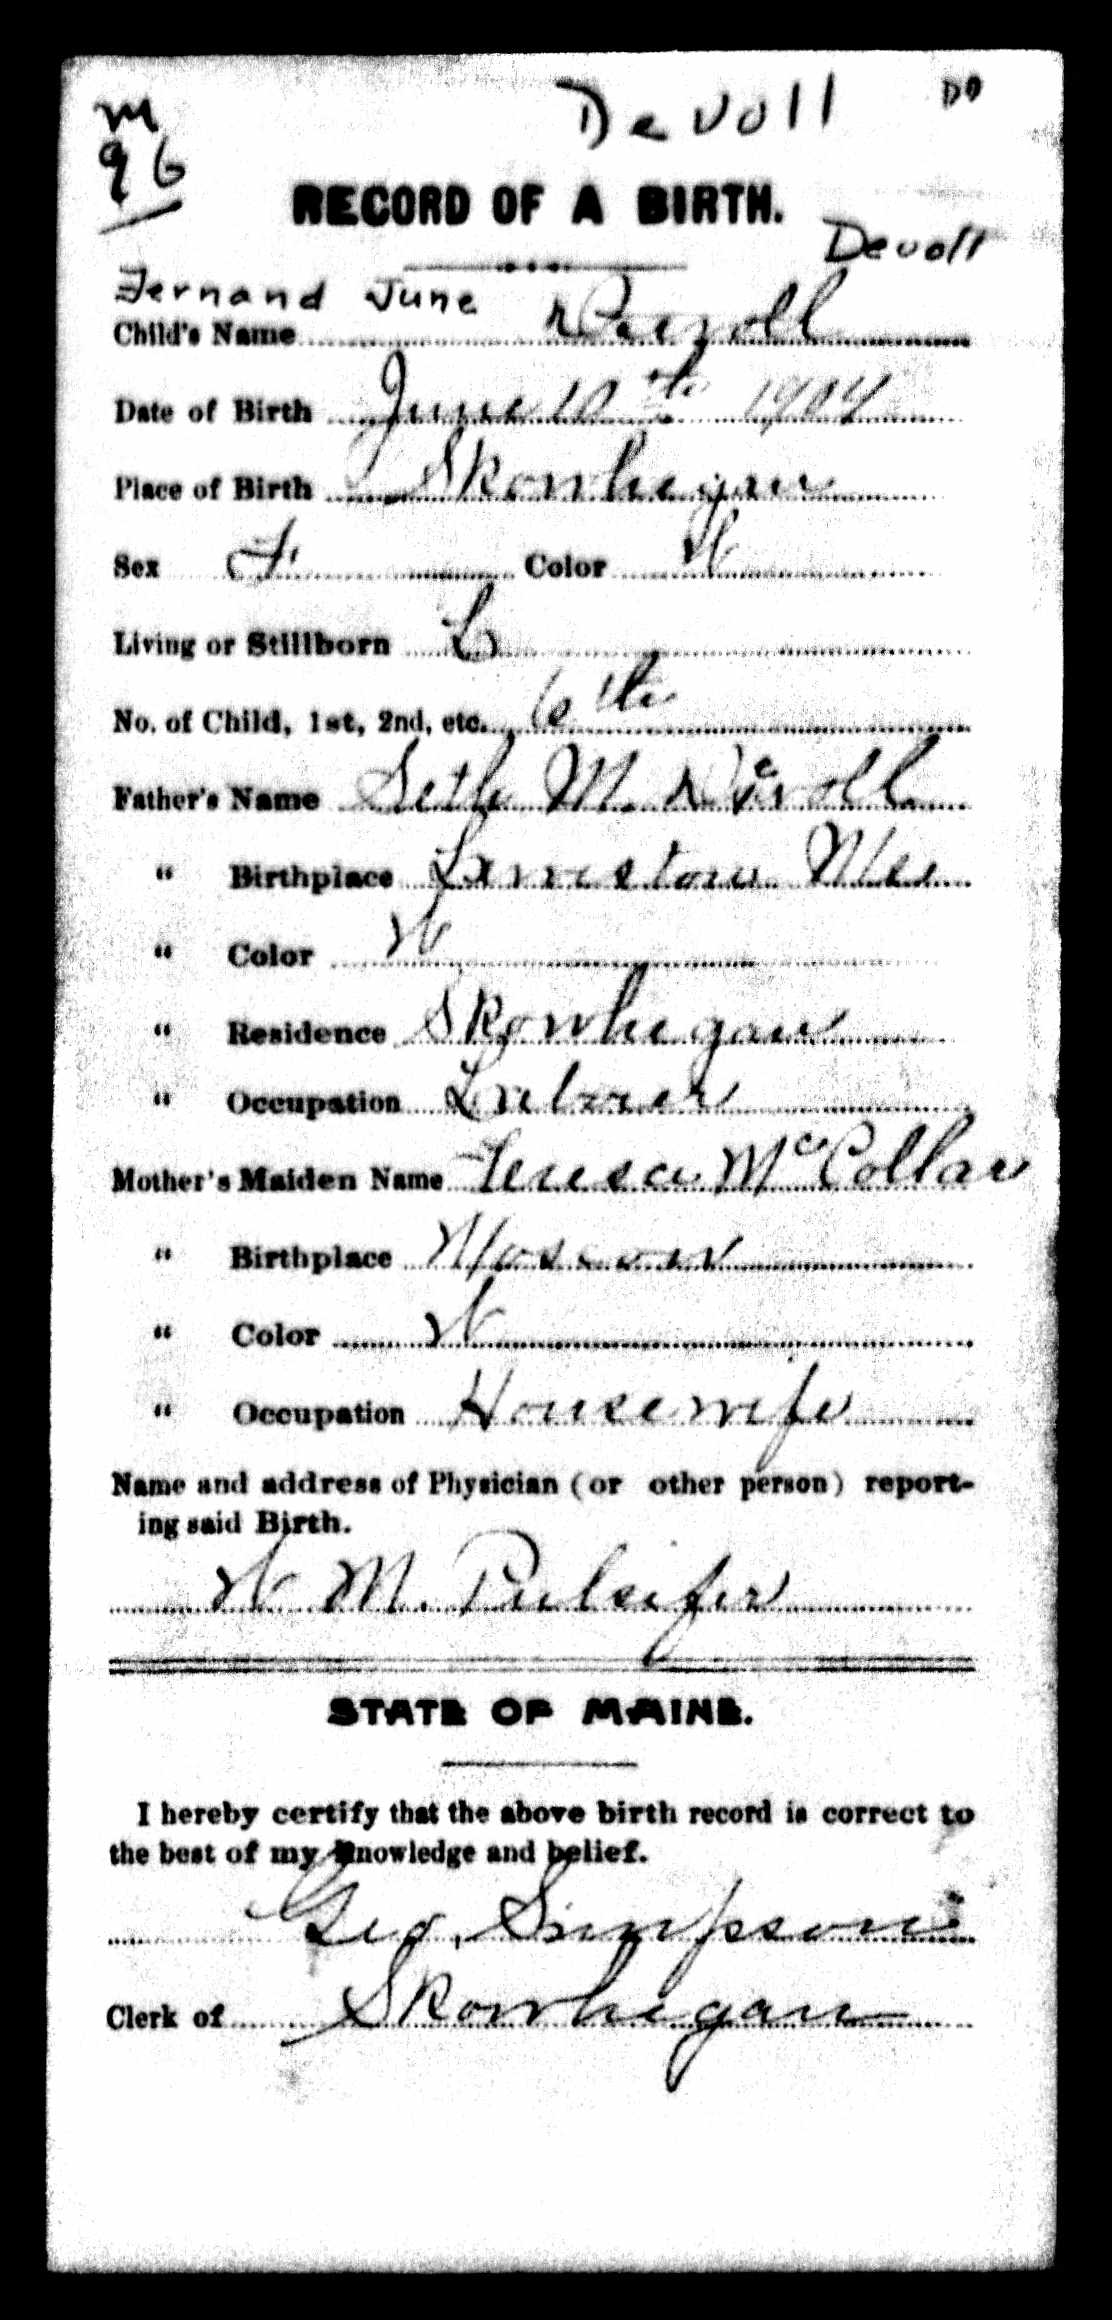 Devoll DD
m
96
RECORD OF A BIRTH.
Devoll
Fernand June
Child's Name Devoll
Date of Birth June 10th 1904
Place of Birth Skowhegan
Sex F. Color W
Living or Stillborn L
No. of Child, 1st, 2nd, etc. 6th
Father's Name Seth M. Devoll
" Birthplace Me
" Color W
" Residence Skowhegan
" Occupation Laborer
Mother's Maiden Name Teresa McCollar
" Birthplace Moscow
" Color W
" Occupation Housewife
Name and address of Physician (or other person) report-
ing said Birth.
W M. Pulsifer
STATE OF MAINE.
I hereby certify that the above birth record is correct to
the best of my knowledge and belief.
Geo. Simpson
Clerk of Skowhegan